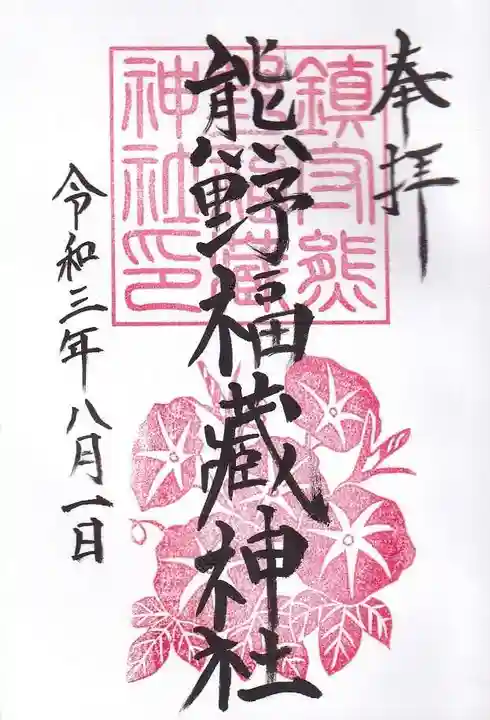 奉拝
熊野福藏神社
令和三年八月一日
鎮守熊
野福藏
神社印